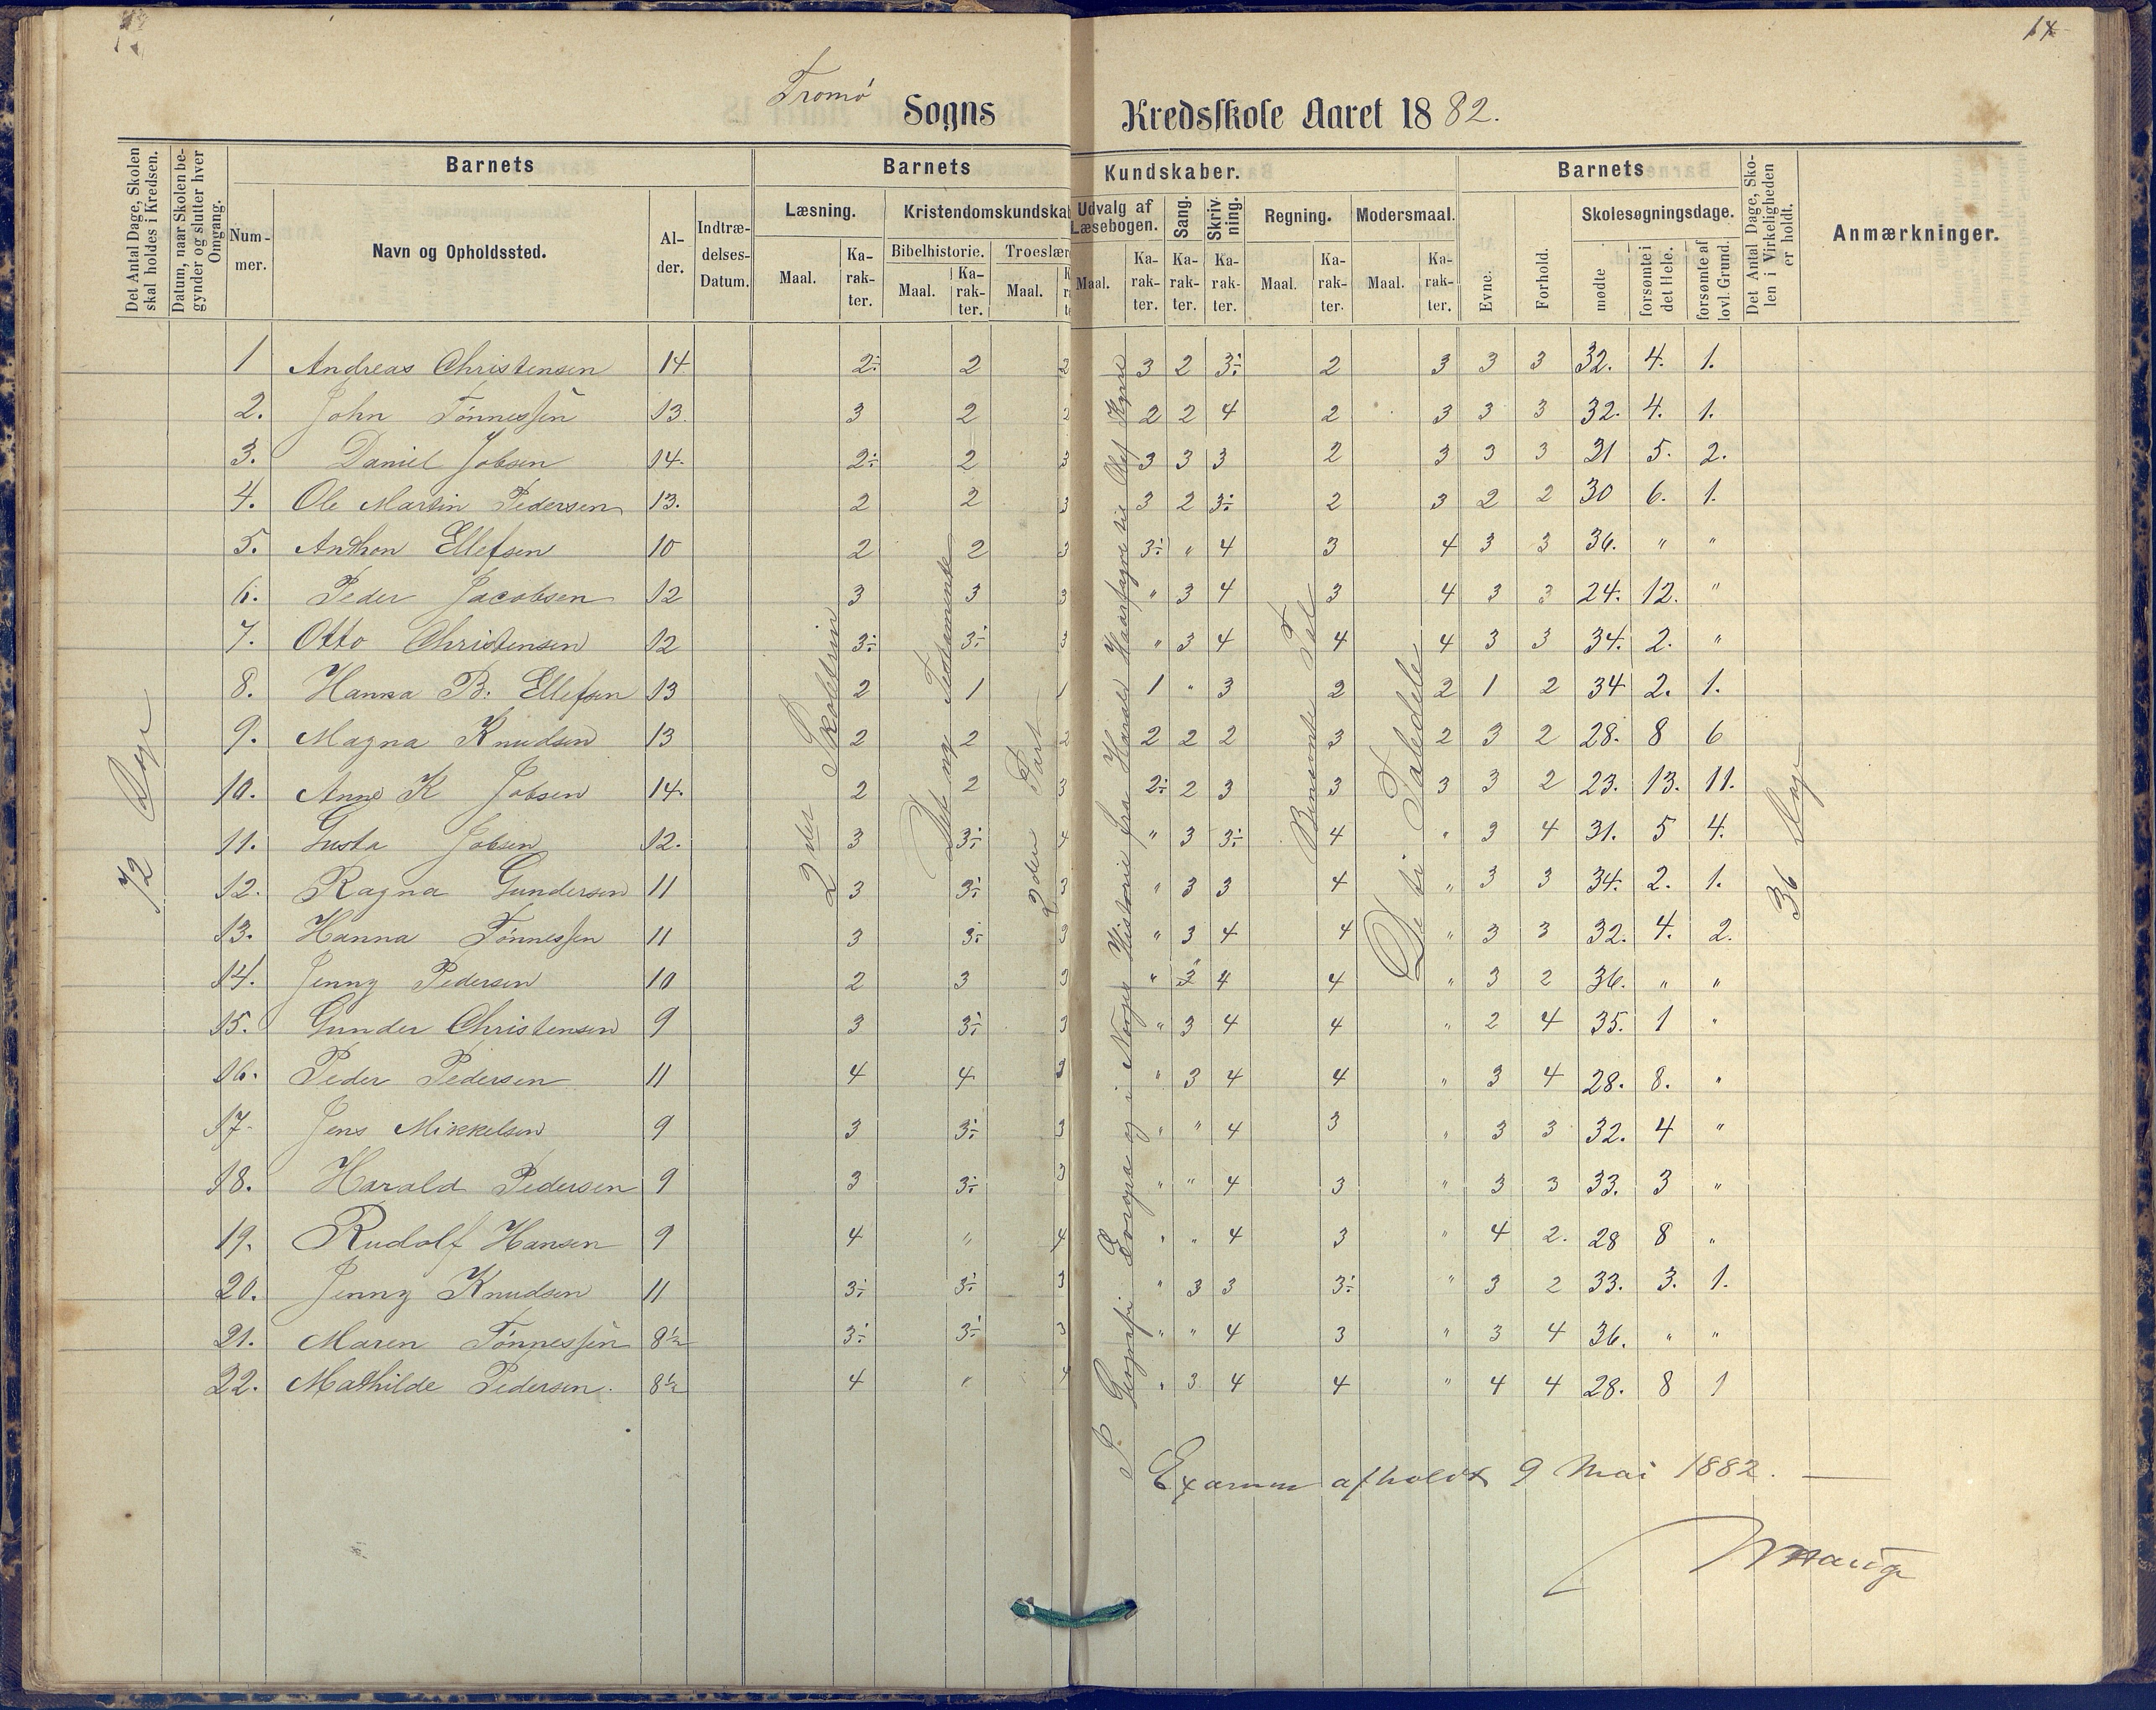 14
Tromø Sogns Kredsskole Aaret 1882.
Det Antal Dage, Skolen skal holdes i Kredsen.
Datum, naar Skolen begynder og slutter hver Omgang.
Barnets
Nummer.
Navn og Opholdssted.
Alder.
Indtrædelses-Datum.
Barnets Kundskaber.
Læsning.
Maal.
Karakter.
Kristendomskundska
Bibelhistorie.
Maal.
Karakter.
Troeslær
Maal.
Udvalg af Læsebogen.
Maal.
Karakter.
Sang.
Karakter.
Skrivning.
Karakter.
Regning.
Maal.
Karakter.
Modersmaal.
Maal.
Karakter.
Barnets
Evne.
Forhold.
Skolesøgningsdage.
mødte
forsømte i det Hele.
forsømte af lovl. Grund.
Det Antal Dage, Skolen i Virkeligheden er holdt.
Anmærkninger.
1 Andreas Christensen 14 2÷ 2 2 3 2 3÷ 2 3 3 3 32. 4. 1.
2. John Tønnessen 13. 3 2 2 2 2 4 2 3 3 3 32. 4. 1.
3. Daniel Jobsen 14. 2÷ 2 3 3 3 3 2 3 3 3 31 5. 2.
4. Ole Martin Pedersen 13. 2 2 3 3 2 3÷ 2 3 2 2 30 6. 1.
5. Anthon Ellefsen 10 2 2 3 3÷ " 4 3 4 3 3 36. " "
6. Peder Jacobsen 12 3 3 3 " 3 4 3 4 3 3 24. 12. "
7. Otto Christensen 12 3÷ 3÷ 3 " 3 4 4 4 3 3 34. 2. "
8. Hanna B. Ellefsen 13 2 1 1 1 " 3 2 2 1 2 34 2. 1.
9. Magna Knudsen 13 2 2 2 2 2 2 3 2 3 2 28. 8 6
10. Anne K Jobsen 14. 2 2 3 2÷ 2 3 3 3 3 2 23. 13. 11.
11. Gusta Jobsen 12. 3 3÷ 4 " 3 3÷ 4 " 3 4 31. 5 4.
12. Ragna Gundersen 11 3 3÷ 3 " 3 3 4 " 3 3 34. 2. 1.
13. Hanna Tønnessen 11 3 3÷ 3 " 3 4 4 " 3 3 32. 4. 2.
14. Jenny Pedersen 10 2 3 3 " 3 4 4 " 3 2 36. " "
15. Gunder Christensen 9 3 3÷ 3 " 3 4 4 " 2 4 35. 1 "
16. Peder Pedersen 11 4 4 3 " 3 4 4 " 3 4 28. 8. "
17. Jens Mikkelsen 9 3 3÷ 3 " " 4 3 " 3 3 32. 4 "
18. Harald Pedersen 9 3 3÷ 3 " " 4 3 " 3 3 33. 3 "
19. Rudolf Hansen 9 4 " 4 " " 4 3 " 4 2. 28 8 "
20. Jenny Knudsen 11 3÷ 3÷ 3 " 3 3 3÷ " 3 2 33. 3. 1.
21. Maren Tønnessen 8½ 3÷ 3÷ 3 " " 4 3 " 3 4 36. " "
22. Mathilde Pedersen. 8½ 4 " 4 " 3 4 4 " 4 4 28. 8 1
72 Dage
2den Skoletrin
Det nye Testamente
2den Part
I Geografi Evropa og i Norges Historie fra Harald Haarfagre til Olaf Kyrre
Benævnte Tal
De ti Taledele
36 Dage
Examen afholdt 9 Mai 1882.